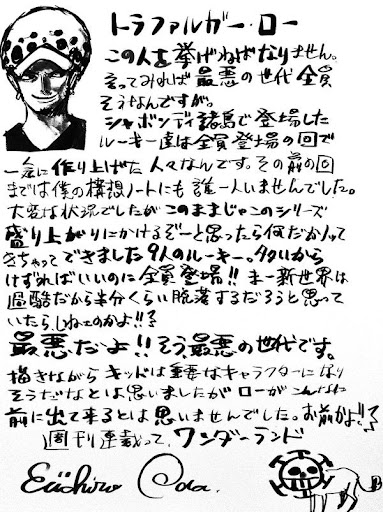 トラファルガー・ロー
この人を挙げねばなりません。
言ってみれば最悪の世代全員
そうなんですが。
シャボンディ諸島で登場した
ルーキー達は全員登場の回で
一気に作り上げた人々なんです。その前の回
までは僕の構想ノートにも誰一人いませんでした。
大変な状況でしたがこのままじゃこのシリーズ
盛り上がりにかけるぞーと思ったら何だか入って
きちゃってできました9人のルーキー。タタいから
けずればいいのに全員登場!!まー新世界は
過酷だから半分くらい脱落するだろうと思って
いたらしねェのかよ!!?
最悪だよ!!そう最悪の世代です。
描きながらキッドは重要なキャラクターになり
そうだなとは思いましたがローがこんなに
前に出て来るとは思いませんでした。お前かよ!!?
週刊連載って、ワンダーランド
Eiichiro Oda.